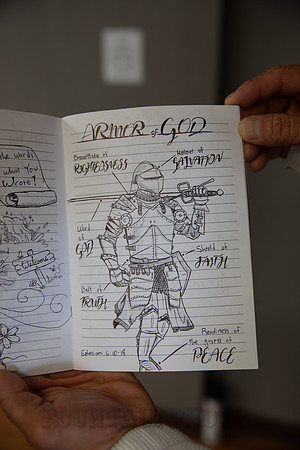 the words
what you
Wrote!
Welcome
ARMOR of GOD
Breastplate of
RIGHTEOUSNESS
Helmet of
SALVATION
Word
of
GOD
Shield of
FAITH
Belt of
TRUTH
Readiness of
the gospel of
PEACE
Ephesians 6:10-18